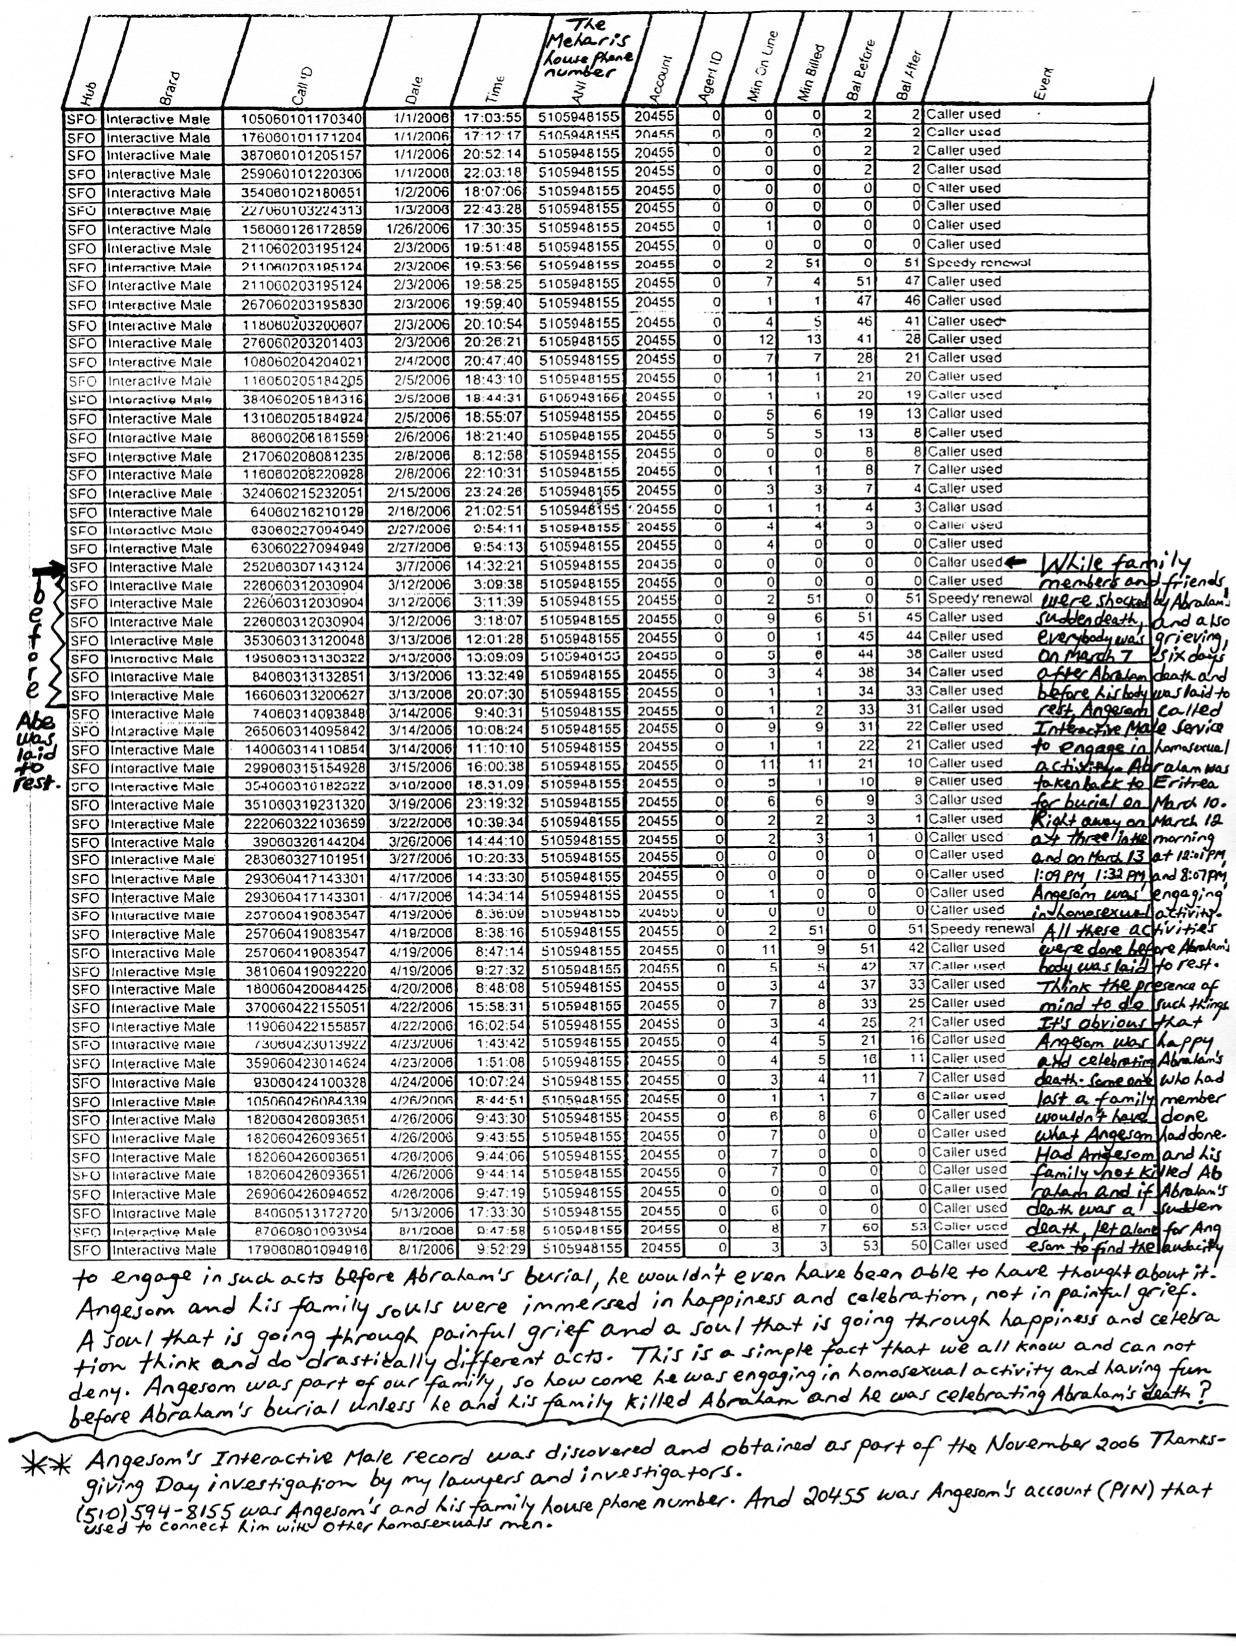 The
Meharis
house phone
number
Hub Brand Call ID Date Time ANI Account Agent ID Min On Line Min Billed Bal Before Bal After Event
SFO Interactive Male 105060101170340 1/1/2006 17:03:55 5105948155 20455 0 0 0 2 2 Caller used
SFO Interactive Male 176060101171204 1/1/2006 17:12:17 5105948155 20455 0 0 0 2 2 Caller used
SFO Interactive Male 387060101205157 1/1/2006 20:52:14 5105948155 20455 0 0 0 2 2 Caller used
SFO Interactive Male 259060101220306 1/1/2006 22:03:18 5105948155 20455 0 0 0 2 2 Caller used
SFO Interactive Male 354060102180651 1/2/2006 18:07:06 5105948155 20455 0 0 0 0 0 Caller used
SFO Interactive Male 227060103224313 1/3/2006 22:43:28 5105948155 20455 0 0 0 0 0 Caller used
SFO Interactive Male 156060126172859 1/26/2006 17:30:35 5105948155 20455 0 1 0 0 0 Caller used
SFO Interactive Male 211060203195124 2/3/2006 19:51:48 5105948155 20455 0 0 0 0 0 Caller used
SFO Interactive Male 211060203195124 2/3/2006 19:53:56 5105948155 20455 0 2 51 0 51 Speedy renewal
SFO Interactive Male 211060203195124 2/3/2006 19:58:25 5105948155 20455 0 7 4 51 47 Caller used
SFO Interactive Male 267060203195830 2/3/2006 19:59:40 5105948155 20455 0 1 1 47 46 Caller used
SFO Interactive Male 118060203200607 2/3/2006 20:10:54 5105948155 20455 0 4 5 46 41 Caller used
SFO Interactive Male 276060203201403 2/3/2006 20:26:21 5105948155 20455 0 12 13 41 28 Caller used
SFO Interactive Male 108060204204021 2/4/2006 20:47:40 5105948155 20455 0 7 7 28 21 Caller used
SFO Interactive Male 116060205184205 2/5/2006 18:43:10 5105948155 20455 0 1 1 21 20 Caller used
SFO Interactive Male 384060205184316 2/5/2006 18:44:31 5105948155 20455 0 1 1 20 19 Caller used
SFO Interactive Male 131060205184924 2/5/2006 18:55:07 5105948155 20455 0 5 6 19 13 Caller used
SFO Interactive Male 86060206181559 2/6/2006 18:21:40 5105948155 20455 0 5 5 13 8 Caller used
SFO Interactive Male 217060208081235 2/8/2006 8:12:58 5105948155 20455 0 0 0 8 8 Caller used
SFO Interactive Male 116060208220928 2/8/2006 22:10:31 5105948155 20455 0 1 1 8 7 Caller used
SFO Interactive Male 324060215232051 2/15/2006 23:24:26 5105948155 20455 0 3 3 7 4 Caller used
SFO Interactive Male 64060216210129 2/16/2006 21:02:51 5105948155 20455 0 1 1 4 3 Caller used
SFO Interactive Male 63060227094949 2/27/2006 9:54:11 5105948155 20455 0 4 4 3 0 Caller used
SFO Interactive Male 63060227094949 2/27/2006 9:54:13 5105948155 20455 0 4 0 0 0 Caller used
SFO Interactive Male 252060307143124 3/7/2006 14:32:21 5105948155 20455 0 0 0 0 0 Caller used
SFO Interactive Male 226060312030904 3/12/2006 3:09:38 5105948155 20455 0 0 0 0 0 Caller used
SFO Interactive Male 226060312030904 3/12/2006 3:11:39 5105948155 20455 0 2 51 0 51 Speedy renewal
SFO Interactive Male 226060312030904 3/12/2006 3:18:07 5105948155 20455 0 9 6 51 45 Caller used
SFO Interactive Male 353060313120048 3/13/2006 12:01:28 5105948155 20455 0 0 1 45 44 Caller used
SFO Interactive Male 195060313130322 3/13/2006 13:09:09 5105948155 20455 0 5 6 44 38 Caller used
SFO Interactive Male 84060313132851 3/13/2006 13:32:49 5105948155 20455 0 3 4 38 34 Caller used
SFO Interactive Male 166060313200627 3/13/2006 20:07:30 5105948155 20455 0 1 1 34 33 Caller used
SFO Interactive Male 74060314093848 3/14/2006 9:40:31 5105948155 20455 0 1 2 33 31 Caller used
SFO Interactive Male 265060314095842 3/14/2006 10:08:24 5105948155 20455 0 9 9 31 22 Caller used
SFO Interactive Male 140060314110854 3/14/2006 11:10:10 5105948155 20455 0 1 1 22 21 Caller used
SFO Interactive Male 299060315154928 3/15/2006 16:00:38 5105948155 20455 0 11 11 21 10 Caller used
SFO Interactive Male 5105948155 20455 0 1 10 9 Caller used
SFO Interactive Male 351060319231320 3/19/2006 23:19:32 5105948155 20455 0 6 6 9 3 Caller used
SFO Interactive Male 222060322103659 3/22/2006 10:39:34 5105948155 20455 0 2 2 3 1 Caller used
SFO Interactive Male 39060326144204 3/26/2006 14:44:10 5105948155 20455 0 2 3 1 0 Caller used
SFO Interactive Male 283060327101951 3/27/2006 10:20:33 5105948155 20455 0 0 0 0 0 Caller used
SFO Interactive Male 293060417143301 4/17/2006 14:33:30 5105948155 20455 0 0 0 0 0 Caller used
SFO Interactive Male 293060417143301 4/17/2006 14:34:14 5105948155 20455 0 1 0 0 0 Caller used
SFO Interactive Male 257060419083547 4/19/2006 8:36:09 5105948155 20455 0 0 0 0 0 Caller used
SFO Interactive Male 257060419083547 4/19/2006 8:38:16 5105948155 20455 0 2 51 0 51 Speedy renewal
SFO Interactive Male 257060419083547 4/19/2006 8:47:14 5105948155 20455 0 11 9 51 42 Caller used
SFO Interactive Male 381060419092220 4/19/2006 9:27:32 5105948155 20455 0 5 5 42 37 Caller used
SFO Interactive Male 180060420084425 4/20/2006 8:48:08 5105948155 20455 0 3 4 37 33 Caller used
SFO Interactive Male 370060422155051 4/22/2006 15:58:31 5105948155 20455 0 7 8 33 25 Caller used
SFO Interactive Male 119060422155857 4/22/2006 16:02:54 5105948155 20455 0 3 4 25 21 Caller used
SFO Interactive Male 73060423013922 4/23/2006 1:43:42 5105948155 20455 0 4 5 21 16 Caller used
SFO Interactive Male 359060423014624 4/23/2006 1:51:08 5105948155 20455 0 4 5 16 11 Caller used
SFO Interactive Male 93060424100328 4/24/2006 10:07:24 5105948155 20455 0 3 4 11 7 Caller used
SFO Interactive Male 105060426084339 4/26/2006 8:44:51 5105948155 20455 0 1 1 7 6 Caller used
SFO Interactive Male 182060426093651 4/26/2006 9:43:30 5105948155 20455 0 6 8 6 0 Caller used
SFO Interactive Male 182060426093651 4/26/2006 9:43:55 5105948155 20455 0 7 0 0 0 Caller used
SFO Interactive Male 182060426093651 4/26/2006 9:44:06 5105948155 20455 0 7 0 0 0 Caller used
SFO Interactive Male 182060426093651 4/26/2006 9:44:14 5105948155 20455 0 7 0 0 0 Caller used
SFO Interactive Male 269060426094652 4/26/2006 9:47:19 5105948155 20455 0 0 0 0 0 Caller used
SFO Interactive Male 84060513172720 5/13/2006 17:33:30 5105948155 20455 0 6 0 0 0 Caller used
SFO Interactive Male 87060801093954 8/1/2006 9:47:58 5105948155 20455 0 8 7 60 53 Caller used
SFO Interactive Male 179060801094916 8/1/2006 9:52:29 5105948155 20455 0 3 3 53 50 Caller used
before
Abe
was
laid
to
rest.
While family
members and friends
were shocked by Abraham's
sudden death, and also
everybody was grieving,
on March 7 six days
after Abraham death and
before his body was laid to
rest Angesom called
Interactive Male service
to engage in homosexual
activity. Abraham was
taken back to Eritrea
for burial on March 10.
Right away on March 12
at three in the morning
and on March 13 at 12:01 PM,
1:09 PM, 1:32 PM and 8:07 PM,
Angesom was engaging
in homosexual activity.
All these activities
were done before Abraham's
body was laid to rest.
Think the presence of
mind to do such things
It's obvious that
Angesom was happy
and celebrating Abraham's
death. Someone who had
lost a family member
wouldn't have done
what Angesom had done.
Had Angesom and his
family not killed Ab
raham and if Abraham's
death was a sudden
death, let alone for Ang
esom to find the audacity
to engage in such acts before Abraham's burial, he wouldn't even have been able to have thought about it.
Angesom and his family souls were immersed in happiness and celebration, not in painful grief.
A soul that is going through painful grief and a soul that is going through happiness and celebra
tion think and do drastically different acts. This is a simple fact that we all know and can not
deny. Angesom was part of our family, so how come he was engaging in homosexual activity and having fun
before Abraham's burial unless he and his family killed Abraham and he was celebrating Abraham's death?
** Angesom's Interactive Male record was discovered and obtained as part of the November 2006 Thanks-
giving Day investigation by my lawyers and investigators.
(510) 594-8155 was Angesom's and his family house phone number. And 20455 was Angesom's account (PIN) that
used to connect him with other homosexuals men.